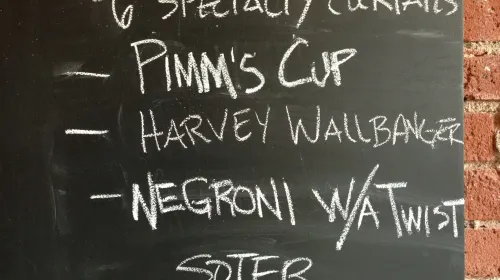 6 SPECIALTY COCKTAILS
- PIMM'S CUP
- HARVEY WALLBANGER
- NEGRONI W/A TWIST
SOTER